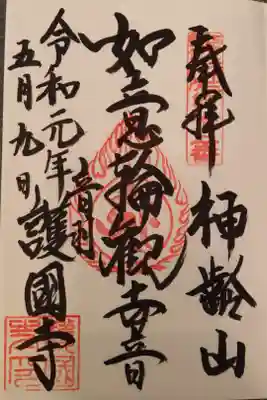 奉拝
神齢山
如意輪觀世音
令和元年
五月九日
音羽
護國寺